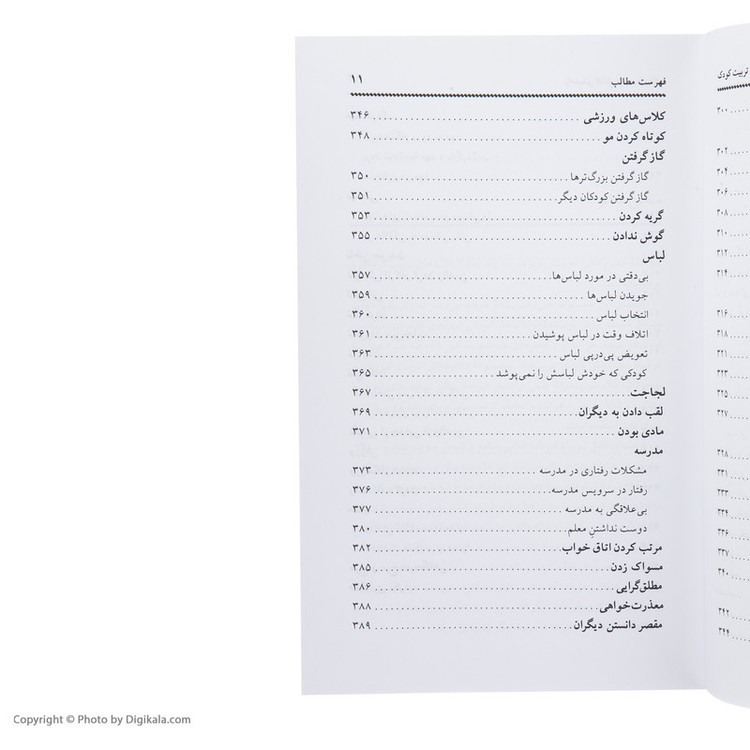 تربیت کودک
۳۰۰
۳۰۲
۳۰۴
۳۰۶
۳۰۸
۳۱۰
۳۱۲
۳۱۴
۳۱۶
۳۱۸
۳۲۱
۳۲۳
۳۲۵
۳۲۷
۳۲۸
۳۳۱
۳۳۳
۳۳۴
۳۳۶
۳۳۷
۳۴۰
۳۴۲
۳۴۴
فهرست مطالب ۱۱
کلاس‌های ورزشی ۳۴۶
کوتاه کردن مو ۳۴۸
گاز گرفتن
گاز گرفتن بزرگ‌ترها ۳۵۰
گاز گرفتن کودکان دیگر ۳۵۱
گریه کردن ۳۵۳
گوش ندادن ۳۵۵
لباس
بی‌دقتی در مورد لباس‌ها ۳۵۷
جویدن لباس‌ها ۳۵۹
انتخاب لباس ۳۶۰
اتلاف وقت در لباس پوشیدن ۳۶۱
تعویض پی‌درپی لباس ۳۶۳
کودکی که خودش لباسش را نمی‌پوشد ۳۶۵
لجاجت ۳۶۷
لقب دادن به دیگران ۳۶۹
مادی بودن ۳۷۱
مدرسه
مشکلات رفتاری در مدرسه ۳۷۳
رفتار در سرویس مدرسه ۳۷۶
بی‌علاقگی به مدرسه ۳۷۷
دوست نداشتنِ معلم ۳۸۰
مرتب کردن اتاق خواب ۳۸۲
مسواک زدن ۳۸۵
مطلق‌گرایی ۳۸۶
معذرت‌خواهی ۳۸۸
مقصر دانستن دیگران ۳۸۹
Copyright © Photo by Digikala.com